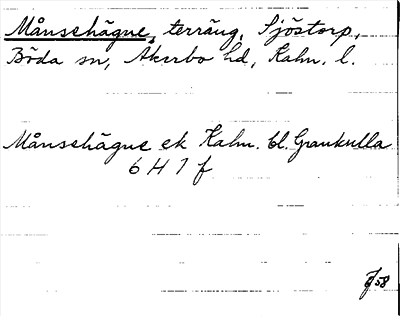 Månsehägne, terräng, Sjöstorp,
Böda sn, Åkerbo hd, Kalm. l.
Månsehägne ek Kalm. bl. Grankulla
6 H 7 f